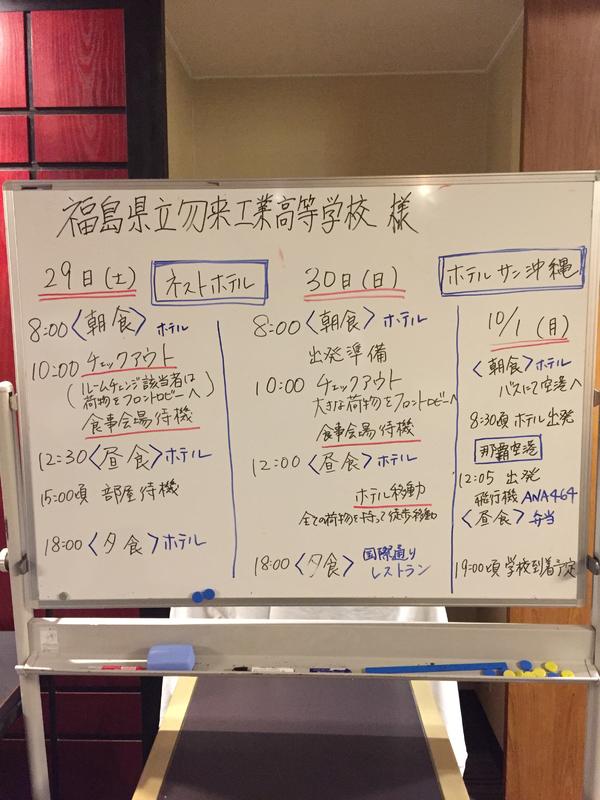 福島県立勿来工業高等学校 様
29日(土) ネストホテル
8:00〈朝食〉ホテル
10:00 チェックアウト
(ルームチェンジ該当者は
荷物をフロントロビーへ)
食事会場待機
12:30〈昼食〉ホテル
15:00頃 部屋待機
18:00〈夕食〉ホテル
30日(日)
8:00〈朝食〉ホテル
出発準備
10:00 チェックアウト
大きな荷物をフロントロビーへ
食事会場待機
12:00〈昼食〉ホテル
ホテル移動
全ての荷物を持って徒歩移動
18:00〈夕食〉国際通り
レストラン
ホテルサン沖縄
10/1(月)
〈朝食〉ホテル
バスにて空港へ
8:30頃 ホテル出発
那覇空港
12:05 出発
飛行機 ANA464
〈昼食〉弁当
19:00頃 学校到着予定